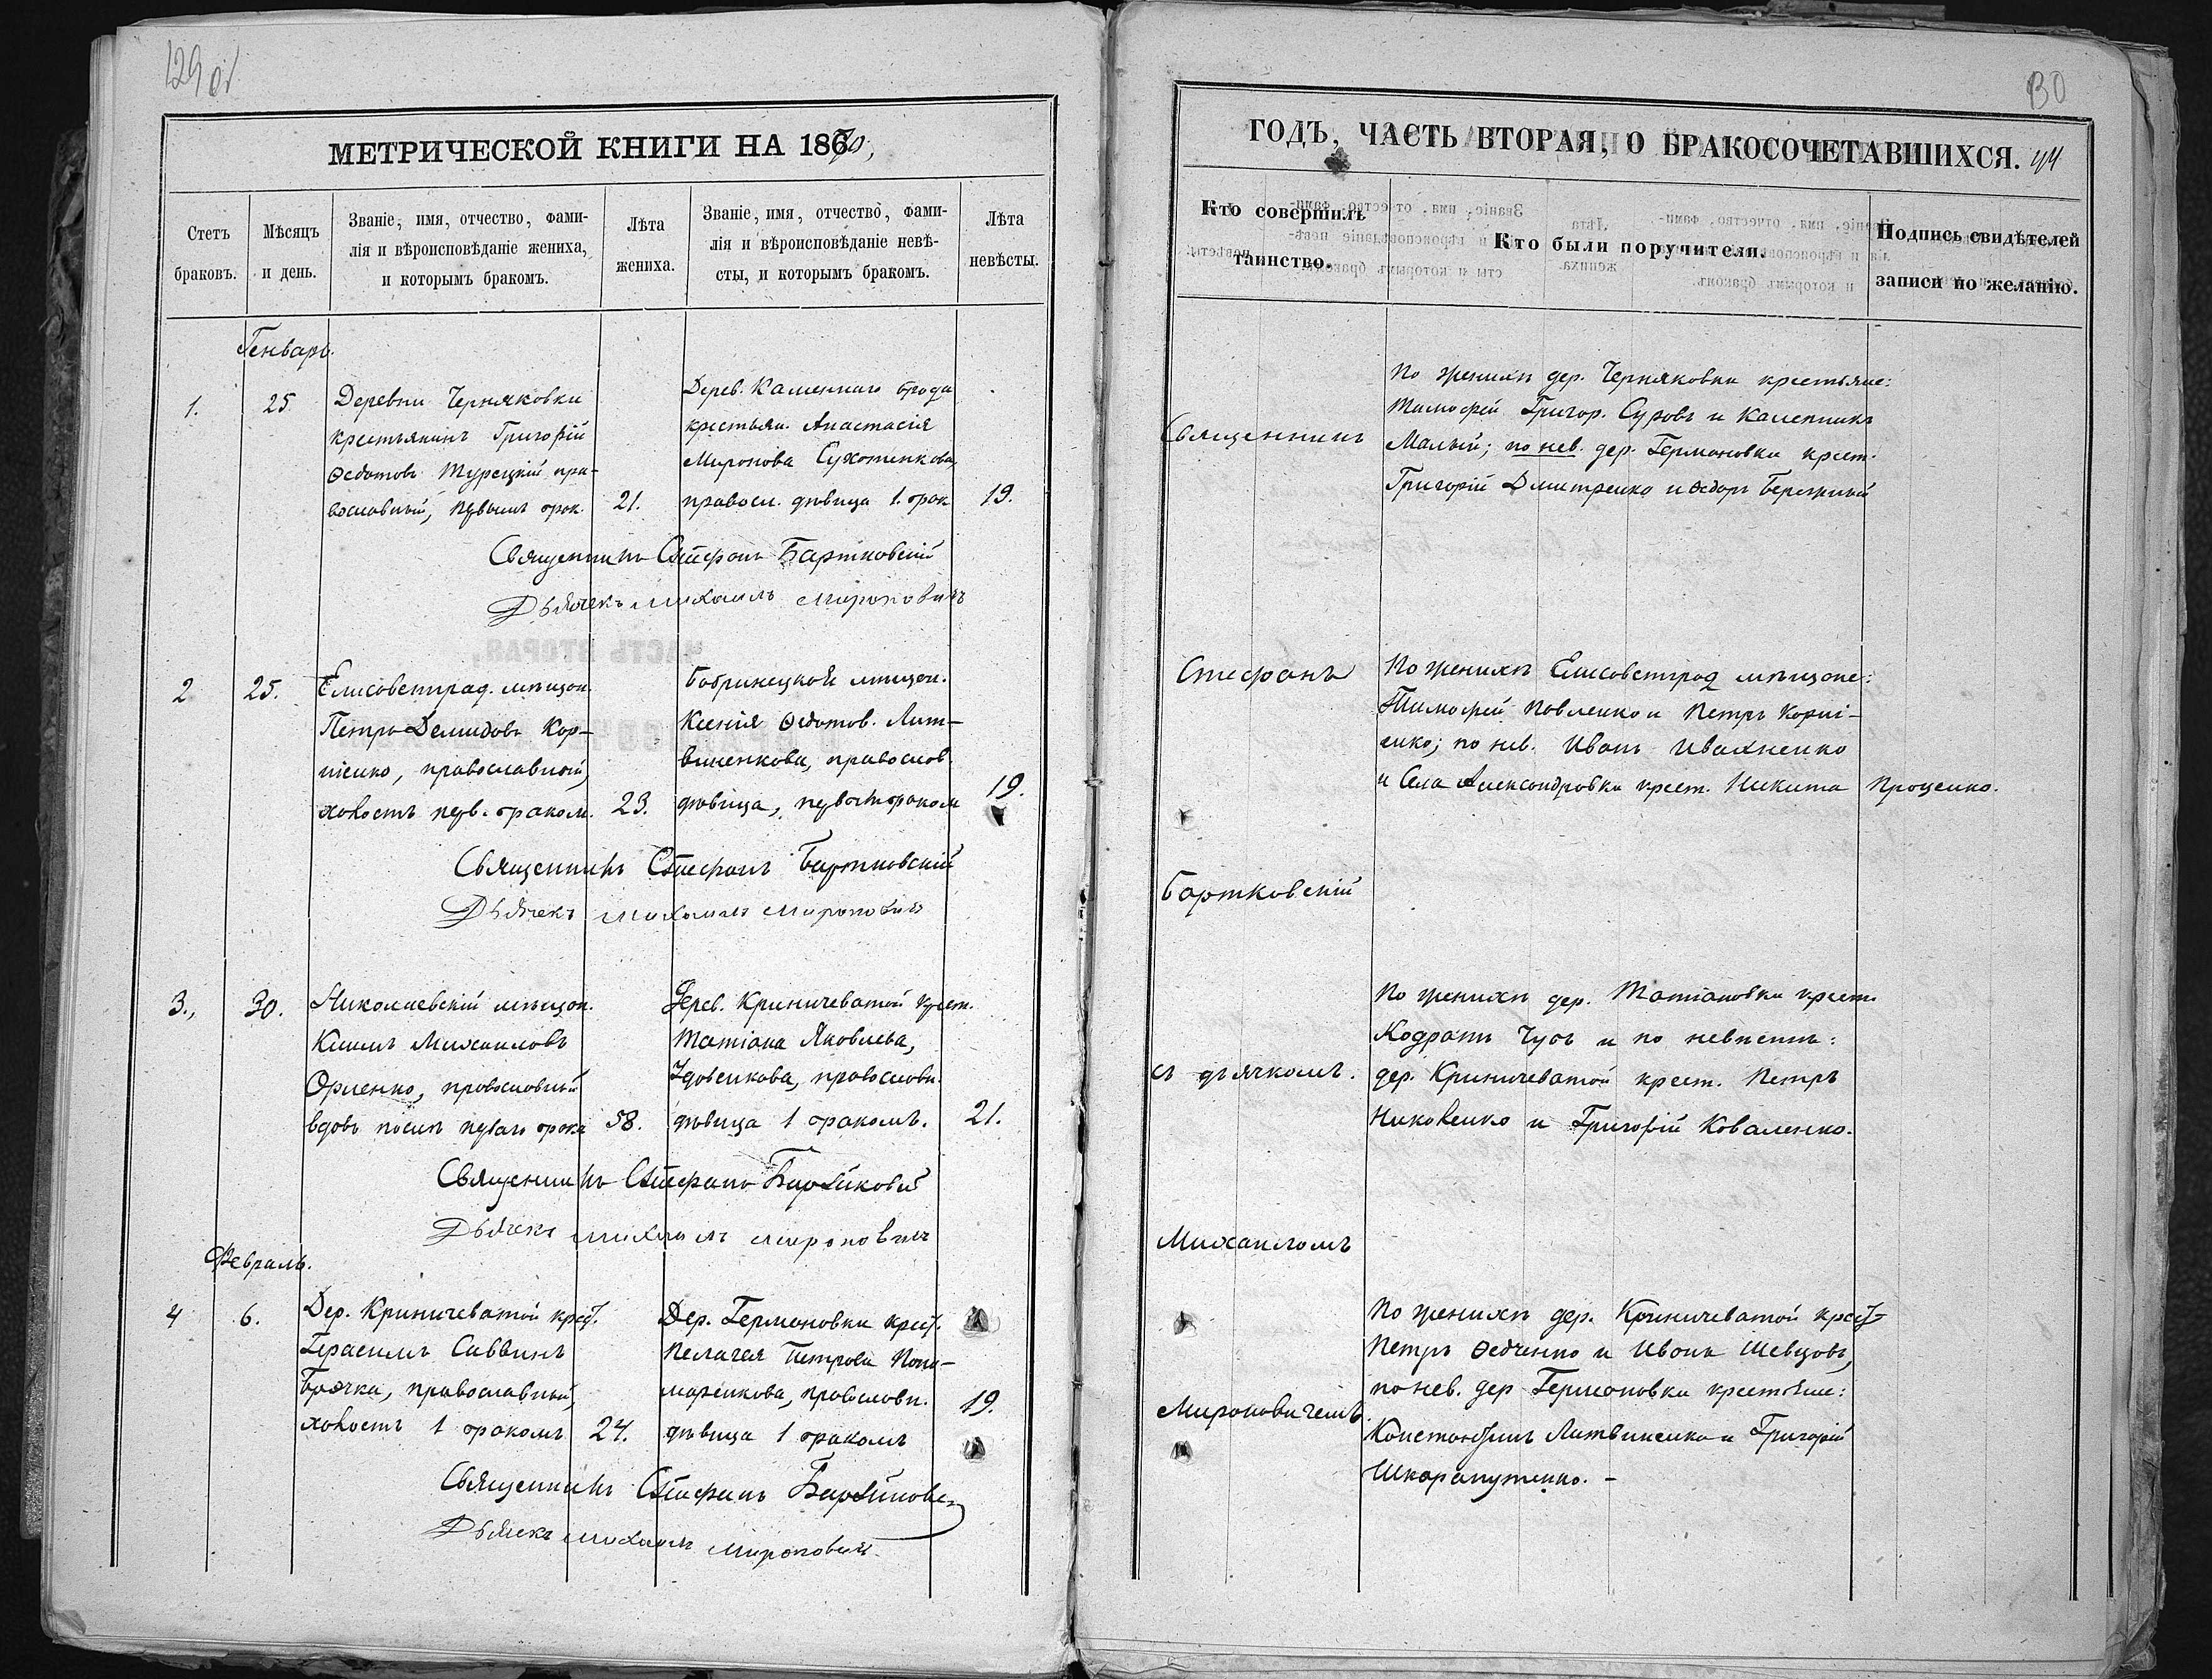 129 об
МЕТРИЧЕСКОЙ КНИГИ НА 1870,
Счетъ браковъ.
Мѣсяцъ и день.
Званіе, имя, отчество, фами-
лія и вѣроисповѣданіе жениха,
и которымъ бракомъ.
Лѣта жениха.
Званіе, имя, отчество, фами-
лія и вѣроисповѣданіе невѣ-
сты, и которымъ бракомъ.
Лѣта невѣсты.
Генварь.
1.
25
Деревни Черняковки
крестьянинъ Григорій
Ѳедотовъ Турецкій пра-
вославный, первымъ брак.
21.
Дерев. Каменнаго брода
крестьян. Анастасія
Миронова Сухотенкова,
правосл. дѣвица 1. брак
19.
Священникъ Стефанъ Бартковскій
Дьячекъ Михаилъ Мироновичъ
2
25.
Елисаветград. мѣщан.
Петръ Демидовъ Кор-
ніенко, православный,
холостъ перв. бракомъ.
23.
Бобринецкой мѣщан.
Ксенія Ѳедотов. Лит-
виненкова, православ.
дѣвица, первымъ бракомъ
19.
Священникъ Стефанъ Бартковскій
Дьячекъ Михаилъ Мироновичъ
3.,
30.
Николаевскій мѣщан.
Климъ Михаиловъ
православный
вдовъ послѣ перваго брака
58.
Дерев. Криничеватой крест.
Татіана Яковлева,
православн.
дѣвица 1 бракомъ.
21.
Священникъ Стефанъ Бартковскій
Дьячекъ Михаилъ Мироновичъ
Февраль.
4
6.
Дер. Криничеватой крест.
Герасимъ Саввинъ
православный,
холостъ 1 бракомъ
24.
Дер. Германовки крест.
Пелагея Петрова Поно-
маренкова, православн.
дѣвица 1 бракомъ
19.
Священникъ Стефанъ Бартковс
Дьячекъ Михаилъ Мироновичъ
130
ГОДЪ, ЧАСТЬ ВТОРАЯ, О БРАКОСОЧЕТАВШИХСЯ. 44
Кто совершилъ таинство.
Кто были поручители.
Подпись свидѣтелей записи по желанію.
Священникъ
По женихѣ дер. Черняковки крестьяне:
Тимофей Григор. Суровъ и Каленникъ
Малый; по нев. дер. Германовки крест.
Григорій Дмитренко и Ѳедоръ Бережный
Стефанъ
По женихѣ Елисаветград мѣщане:
Тимофей Павленко и Петръ Корні-
енко; по нев. Иванъ Ивахненко
и Села Александровки крест. Никита Проценко.
Бартковскій
По женихѣ дер. Татіановки крест.
Кодратъ Чусь и по невѣстѣ:
съ дьячкомъ.
дер. Криничеватой крест. Петръ
и Григорій Коваленко.
Михаиломъ
По женихѣ дер. Криничеватой крест
Петръ Ѳедченко и Иванъ Шевцовъ,
по нев. дер Германовки крестьяне:
Мироновичемъ.
Константинъ Литвиненко и Григорій
Шкарапутенко. -